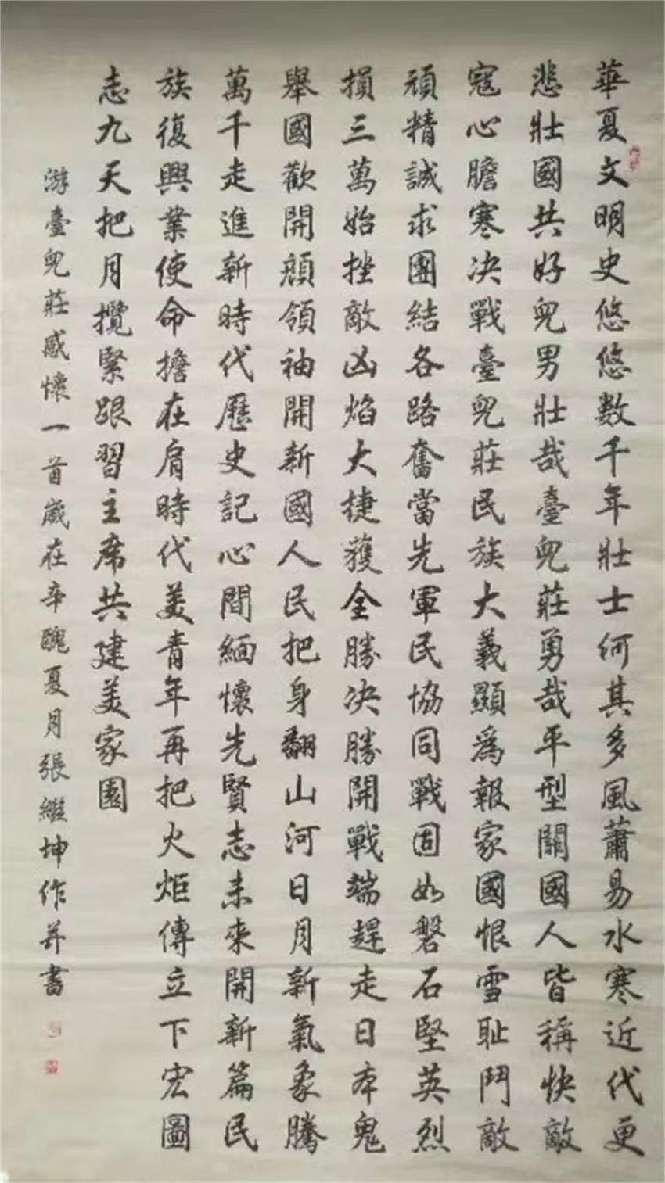 華夏文明史悠悠数千年壯士何其多風蕭易水寒近代更
悲壯國共好兒男壯哉臺兒莊勇哉平型關國人皆稱快敵
寇心膽寒决戰臺兒莊民族大義顯為報家國恨雪耻鬥敵
頑精誠求團結各路奮當先軍民協同戰固如磐石堅英烈
損三萬始挫敵凶焰大捷獲全勝决勝開戰端趕走日本鬼
舉國歡開顔領袖開新國人民把身翻山河日月新氣象騰
萬千走進新時代歷史記心間緬懷先賢志未來開新篇民
族復興業使命擔在肩時代美青年再把火炬傳立下宏圖
志九天把月攬緊跟習主席共建美家園
游臺兒莊感懷一首歲在辛醜夏月張繼坤作并書